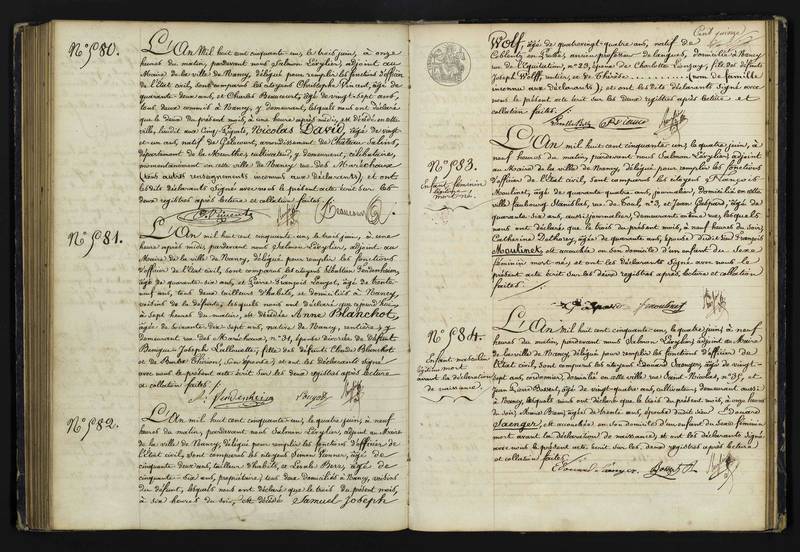 N.° 580.
L'An mil huit cent cinquante-un, le trois juin, à onze
heures du matin, pardevant nous Salmon Lévylier, adjoint au
Maire de la ville de Nancy, délégué pour remplir les fonctions d'officier
de l'état civil, sont comparus les citoyens Christophe Vincent, âgé de
quarante-deux ans, et Charles Beaucourt, âgé de vingt-sept ans,
tous deux commis à Nancy, y demeurant, lesquels nous ont déclaré
que le deux du présent mois, à une heure après midi, est décédé en cette
ville, lundit aux Cinq-Piquets, Nicolas David, âgé de vingt
et-un ans, natif de Gélucourt, arrondissement de Château Salins,
département de la Meurthe, cultivateur, y demeurant, célibataire,
momentanément en cette ville de Nancy, rue des Maréchaux
(sans autres renseignements connus aux déclarants), et ont
les dits déclarants Signé avec nous le présent acte écrit sur les
deux registres après lecture et collation faites.
N.° 581.
L'An mil huit cent cinquante-un, le trois juin, à une
heure après midi, pardevant nous Salmon Lévylier, adjoint au
Maire de la ville de Nancy, délégué pour remplir les fonctions
d'officier de l'état civil, sont comparus les citoyens Sébastien
âgé de quarante-six ans, et Pierre François Lauzot, âgé de trente-
neuf ans, tous deux tailleurs d'habits, et domiciliés à Nancy,
voisins de la défunte, lesquels nous ont déclaré que cejourd'hui
à sept heures du matin, est décédée Anne Blanchot,
âgée de soixante-dix sept ans, native de Nancy, rentière, y
demeurant rue des Maréchaux, n.° 31, épouse divorcée de défunt
Benigne Joseph Lallouette; fille des défunts Claude Blanchot
et de Barbe Thirion, son épouse; et ont les déclarants signé
avec nous le présent acte écrit sur les deux registres après lecture
et collation faites.
N.° 582.
L'An mil huit cent cinquante-un, le quatre juin, à neuf
heures du matin, pardevant nous Salmon Lévylier, adjoint au Maire
de la ville de Nancy, délégué pour remplir les fonctions d'officier de
l'état civil, sont comparus les citoyens Simon âgé de
cinquante-deux ans, tailleur d'habits, et âgé de
cinquante-six ans, propriétaire; tous deux domiciliés à Nancy, voisins
du défunt, lesquels nous ont déclaré que le trois du présent mois,
à six heures du soir, est décédé Samuel Joseph
Cent quinze
Wolf, âgé de quatrevingt-quatre ans, natif de
Coblentz, en Prusse, ancien professeur de langues, domicilié à Nancy
rue de l'Equitation, n.° 23, époux de Charlotte fils des défunts
Joseph Wolff, rentier, et de Thérèse ........... (nom de famille
inconnu aux déclarants); et ont les dits déclarants Signé avec
nous le présent acte écrit sur les deux registres après lecture et
collation faites.
N.° 583.
Enfant féminin
légitime
mort-né.
L'An mil huit cent cinquante-un, le quatre juin, à
neuf heures du matin, pardevant nous Salmon Lévylier, adjoint
au Maire de la ville de Nancy, délégué pour remplir les fonctions
d'officier de l'état civil, sont comparus les citoyens François
Moulinet, âgé de quarante quatre ans, journalier, domicilié en cette
ville faubourg Stanislas, rue de Toul, n.° 3, et Jean Gaspard, âgé de
quarante six ans, aussi journalier, demeurant même rue, lesquels
nous ont déclaré que le trois du présent mois, à neuf heures du soir,
Catherine âgée de quarante neuf, épouse dudit sieur François
Moulinet, est accouchée en son domicile d'un enfant du Sexe
féminin mort-né, et ont les déclarants Signé avec nous le
présent acte écrit sur les deux registres après lecture et collation
faites.
N.° 584.
Enfant masculin
légitime mort
avant la déclaration
de naissance.
L'An mil huit cent cinquante-un, le quatre juin, à neuf
heures du matin, pardevant nous Salmon Lévylier, adjoint au Maire
de la ville de Nancy, délégué pour remplir les fonctions d'officier de
l'état civil, sont comparus les citoyens Edouard Saenger, âgé de vingt-
sept ans, cordonnier, domicilié en cette ville rue Saint Nicolas, n.° 35, et
Jean âgé de vingt-quatre ans, cultivateur, demeurant aussi
à Nancy, lesquels nous ont déclaré que le trois du présent mois, à onze heures
du soir, âgée de trente ans, épouse dudit sieur Edouard
Saenger, est accouchée en son domicile d'un enfant du Sexe féminin
mort avant la déclaration de naissance; et ont les déclarants Signé
avec nous le présent acte écrit sur les deux registres après lecture
et collation faites.